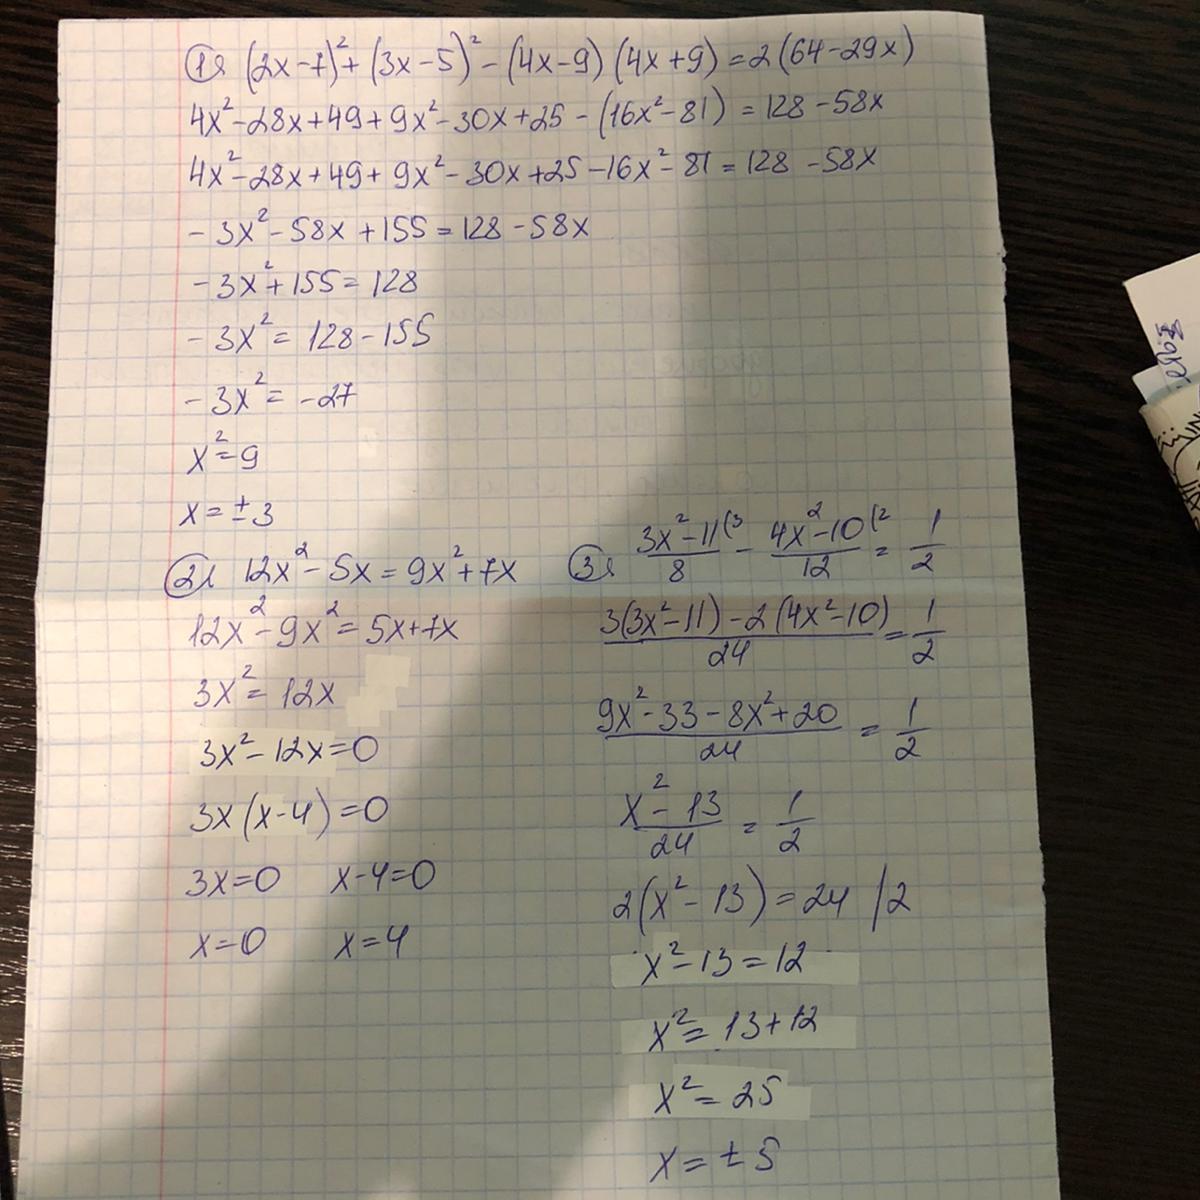 1) (2x-7)²+(3x-5)²-(4x-9)(4x+9)=2(64-29x)
4x²-28x+49+9x²-30x+25-(16x²-81)=128-58x
4x²-28x+49+9x²-30x+25-16x²-81=128-58x
-3x²-58x+155=128-58x
-3x²+155=128
-3x²=128-155
-3x²=-27
x²=9
x=±3
2) 12x²-5x=9x²+7x
12x²-9x²=5x+7x
3x²=12x
3x²-12x=0
3x(x-4)=0
3x=0 x-4=0
x=0 x=4
3) (3x²-11)/8 (3 - (4x²-10)/12 (2 = 1/2
(3(3x²-11)-2(4x²-10))/24=1/2
(9x²-33-8x²+20)/24=1/2
(x²-13)/24=1/2
2(x²-13)=24 /2
x²-13=12
x²=13+12
x²=25
x=±5